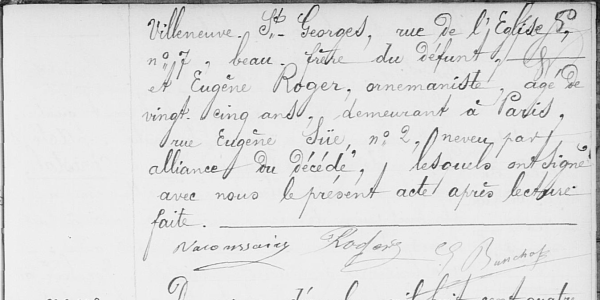 Villeneuve St- Georges, rue de l'Eglise
n° 7, beau-frère du défunt,
et Eugène Roger, ornemaniste, agé de
vingt-cinq ans, demeurant à Paris,
rue Eugène Süe, n° 2, neveu par
alliance du décédé, lesquels ont signé
avec nous le présent acte après lecture
faite.
Roger